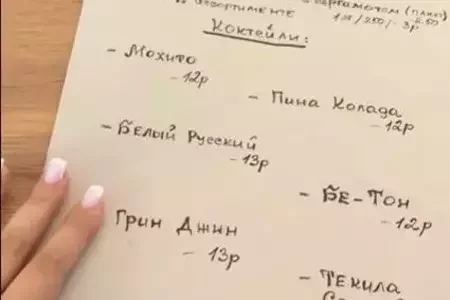 в ассортименте
бергамотом (пакет)
1шт/250/- 3р
Коктейли:
- Мохито
- 12р
- Пина Колада
- 12р
- Белый Русский
- 13р
- БЕ-ТОН
- 12р
Грин Джин
- 13р
- Текила